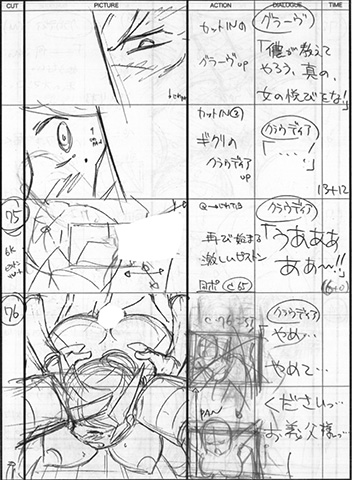 CUT
PICTURE
ACTION
DIALOGUE
TIME
カットINの
グラーヴup
グラーヴ
「僕が教えて
やろう、真の、
女の悦びをな!」
カットIN③
ギクリの
クラウディア
up
クラウディア
「…!」
13+12
75
再び始まる
激しいピストン
クラウディア
「うあああ
あぁ〜!!」
(6+0)
76
PAN
クラウディア
「やめ…
やめて…
くださいっ…
お義父様っ…